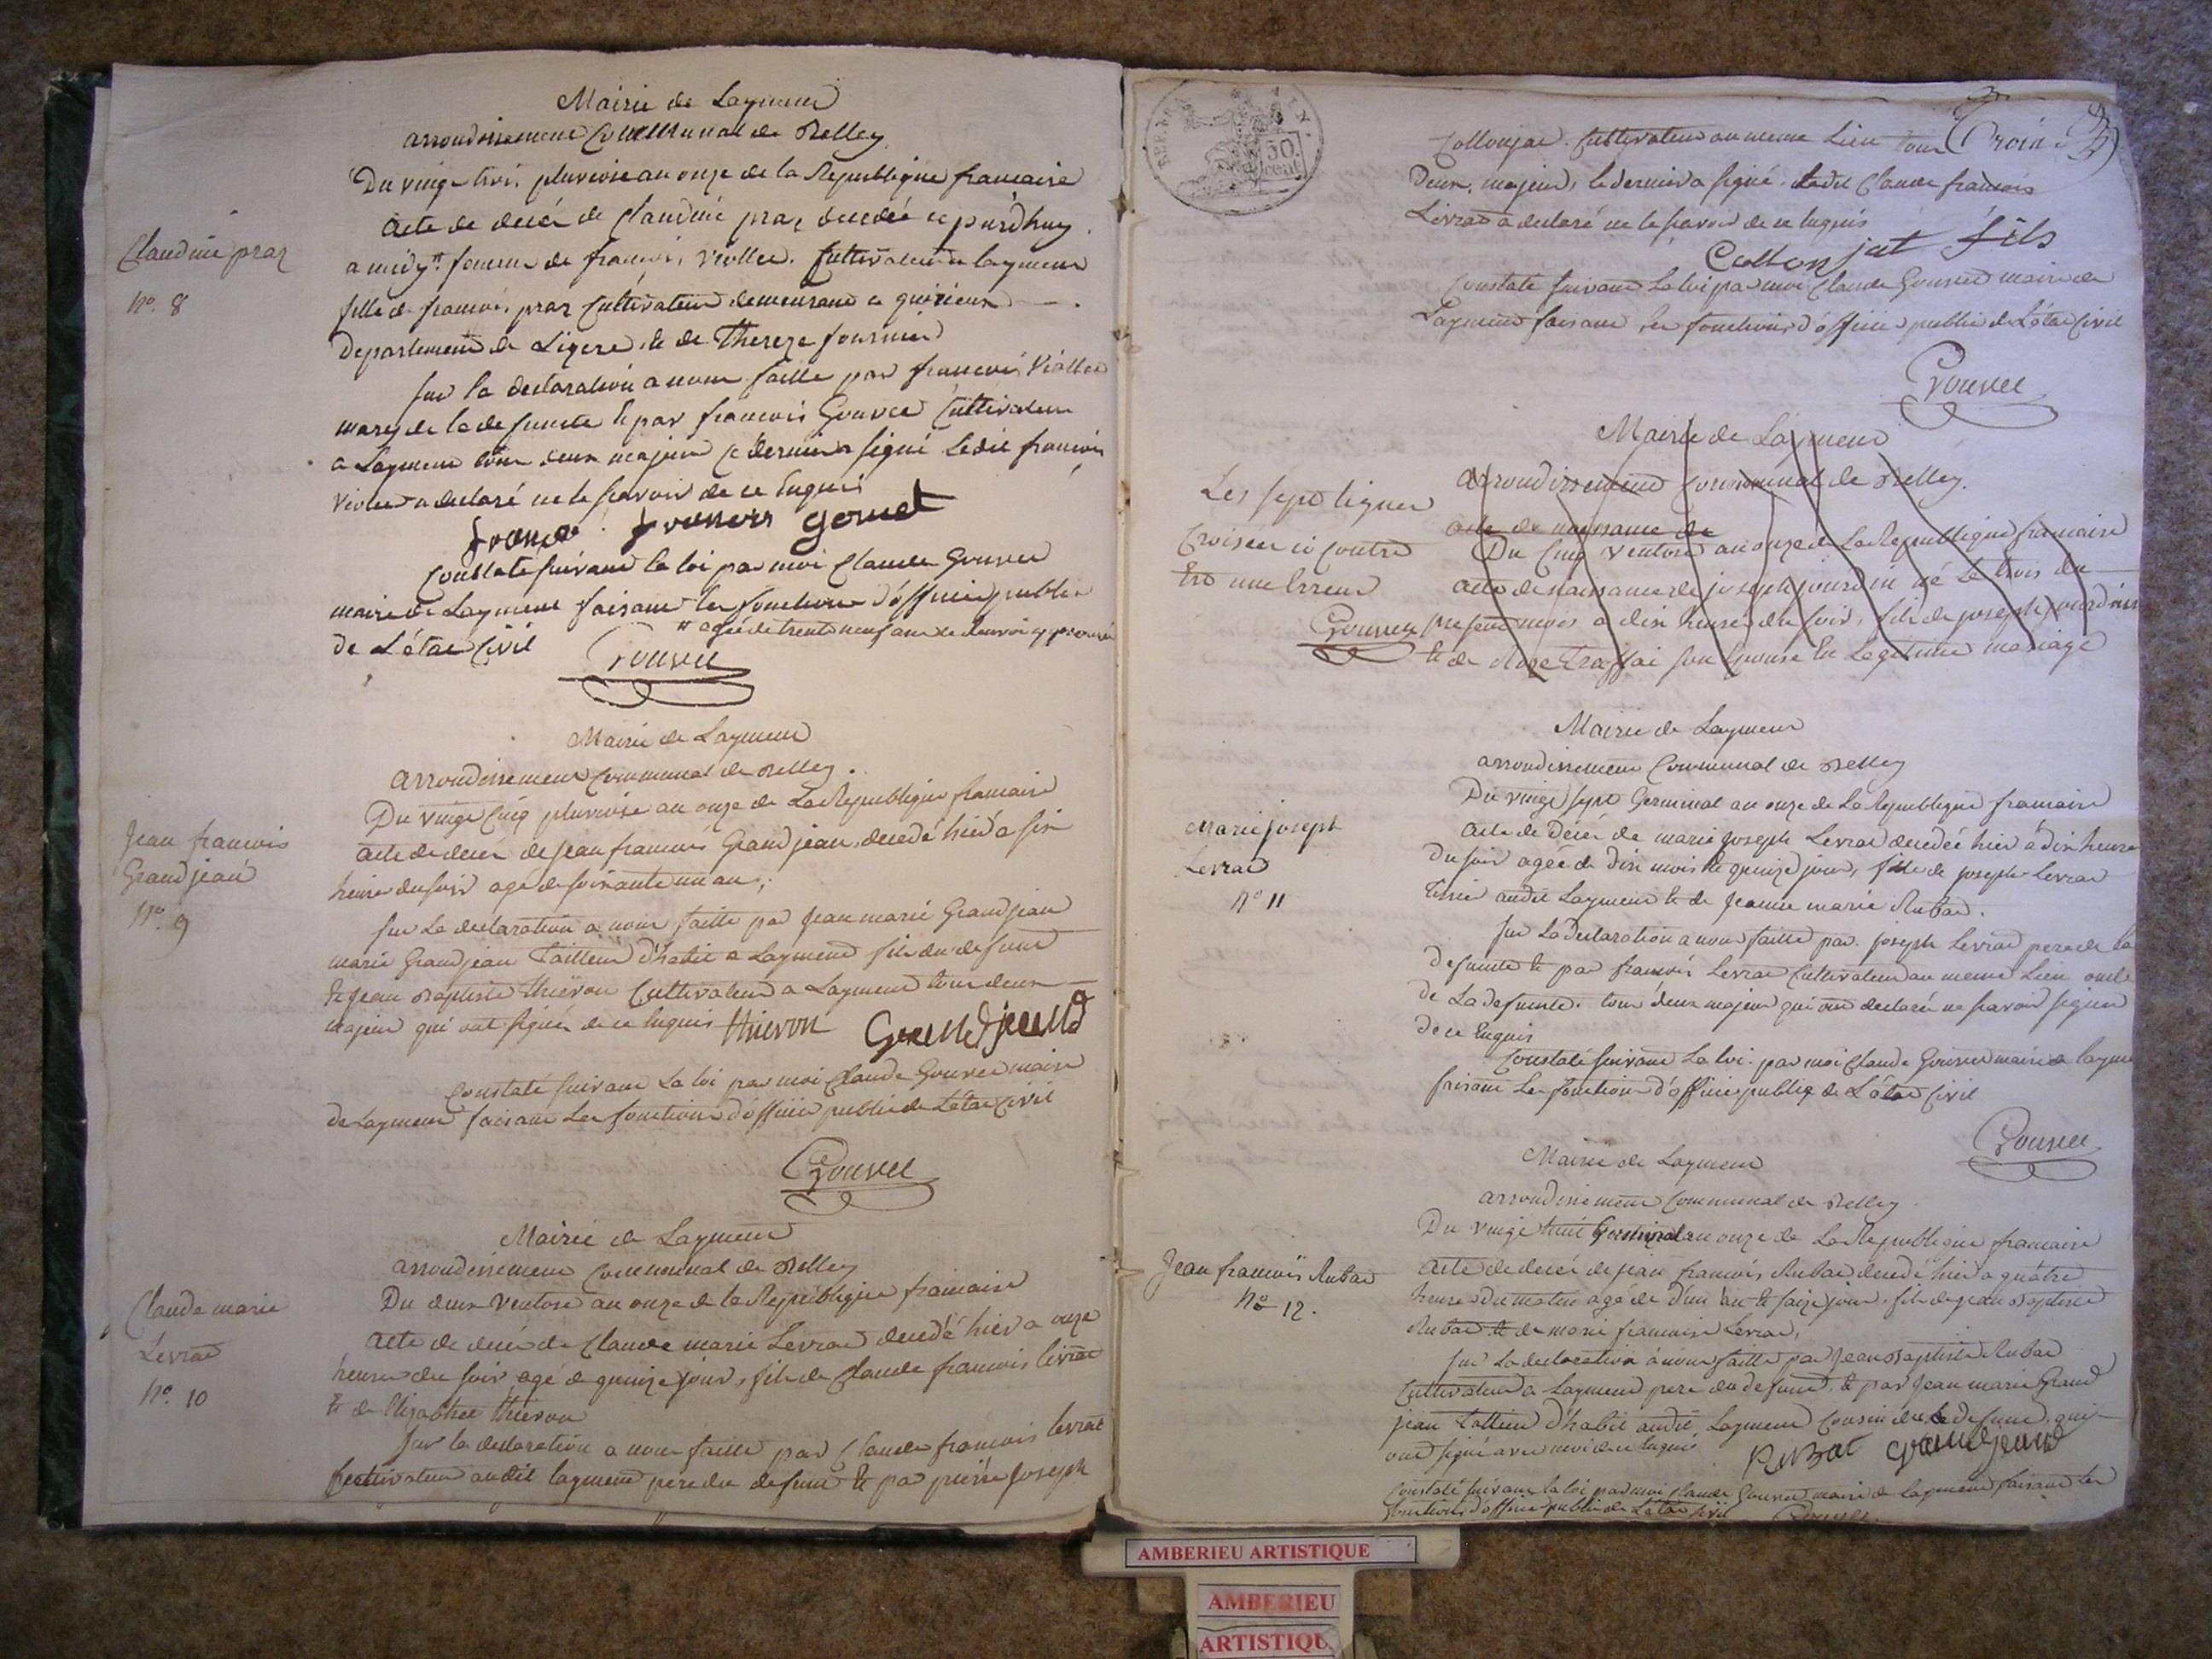 Mairie de Laymend
arrondissement Communal de Belley
Du vingt trois pluviose an onze de la Republique francaise
Acte de decés de Claudine praz decedée ce jourdhuy
Claudine praz
No. 8
a midy # femme de francois Viollet Cultivateur a laymend
fille de francois praz Cultivateur demeurant a quirieux
Departement de Lizere, et de Thereze fournier
Sur la declaration a nous faitte par francois Viollet
mary de la defunte et par francois Gouvet Cultivateur
a Laymend tous deux majeurs ce dernier a signé Ledit francois
Viollet a declaré ne le scavoir de ce Enquis
francois gouvet
Constaté suivant la loi par moi Claude Gouvet
maire de Laymend faisant les fonctions d'officier public
# agée de trente neuf ans ce renvoi approuvé
de L'état Civil
Gouvet
Mairie de Laymend
arrondissement Communal de Belley.
Du vingt Cinq pluviose an onze de La Republique francaise
Jean francois
Grandjean
No. 9
acte de decés de jean francois Grandjean, decedé hier a six
heures du soir agé de soixante un an;
Sur La declaration a nous faitte par Jean marie Grandjean
marie Grandjean Tailleur d'habit a Laymend fils du defunt
et Jean Baptiste thiévon Cultivateur a Laymend tous deux
majeurs qui ont signés de ce Enquis thievon Grandjeand
Constaté suivant La loi par moi Claude Gouvet maire
de Laymend faisant Les fonctions d'officier public de L'état Civil
Gouvet
Mairie de Laymend
arrondissement Communal de Belley
Du deux Ventose an onze de la Republique francaise
Claude marie
Levrat
No. 10
Acte de decés de Claude marie Levrat decedé hier a onze
heures du soir agé de quinze jours, fils de Claude francois livrat
et de Elizabhet thievon
Sur la declaration a nous faitte par Claude francois levrat
Cultivateur audit laymend pere du defunt et par pierre Joseph
REP. FRA.
50.
cent.
Trois
Collonjat Cultivateur au meme Lieu tous
Deux majeurs, le dernier a signé, Ledit Claude francois
Livrat a declaré ne le scavoir de ce Enquis
Collonjat fils
Constaté suivant La loi par moi Claude Gouvet maire de
Laymend faisant les fonctions d'officier public de L'état Civil
Gouvet
Mairie de Laymend
arrondissement Communal de Belley.
Les sept lignes
Croisées ci contre
Est une Erreur
Gouvet
acte de naissance de
Du Cinq Ventose an onze de La Republique francaise
acte de naissance de joseph jourdin né Le trois du
present mois a dix heures du soir, fils de joseph jourdin
et de son Epouse En Legitime mariage
Mairie de Laymend
arrondissement Communal de Belley
Du vingt sept Germinal an onze de La Republique francaise
Marie joseph
Levrat
No 11
Acte de Decés de marie joseph Levrat decedée hier a dix heures
Du soir agée de dix mois et quinze jours, fille de joseph Levrat
audit Laymend et de jeanne marie Rubat.
Sur La declaration a nous faitte par joseph Levrat pere de la
defunte et par francois Levrat Cultivateur au meme Lieu oncle
de La defunte. tous deux majeurs qui ont declarés ne scavoir signer
de ce Enquis
Constaté suivant La loi par moi Claude Gouvet maire a laymend
faisant Les fonctions d'officier public de L'état Civil
Gouvet
Mairie de Laymend
arrondissement Communal de Belley
Du vingt huit Germinal an onze de La Republique francaise
Jean francois Rubat
No 12.
Acte de decés de jean francois Rubat decedé hier a quatre
heures du matin agé de d'un an et seize jours, fils de jean Baptiste
Rubat et de marie francoise Levrat,
Sur La declaration a nous faitte par Jean Baptiste Rubat
Cultivateur a Laymend pere du defunt, et par Jean marie Grand
jean tallieur d'habit audit Laymend Cousin du defunt, qui
ont signé avec moi de ce Enquis Rubat Grandjeand
Constaté suivant la loi par moi Claude Gouvet maire de laymend faisant les
fonctions d'officier public de L'état Civil Gouvet
AMBERIEU ARTISTIQUE
AMBERIEU
ARTISTIQU